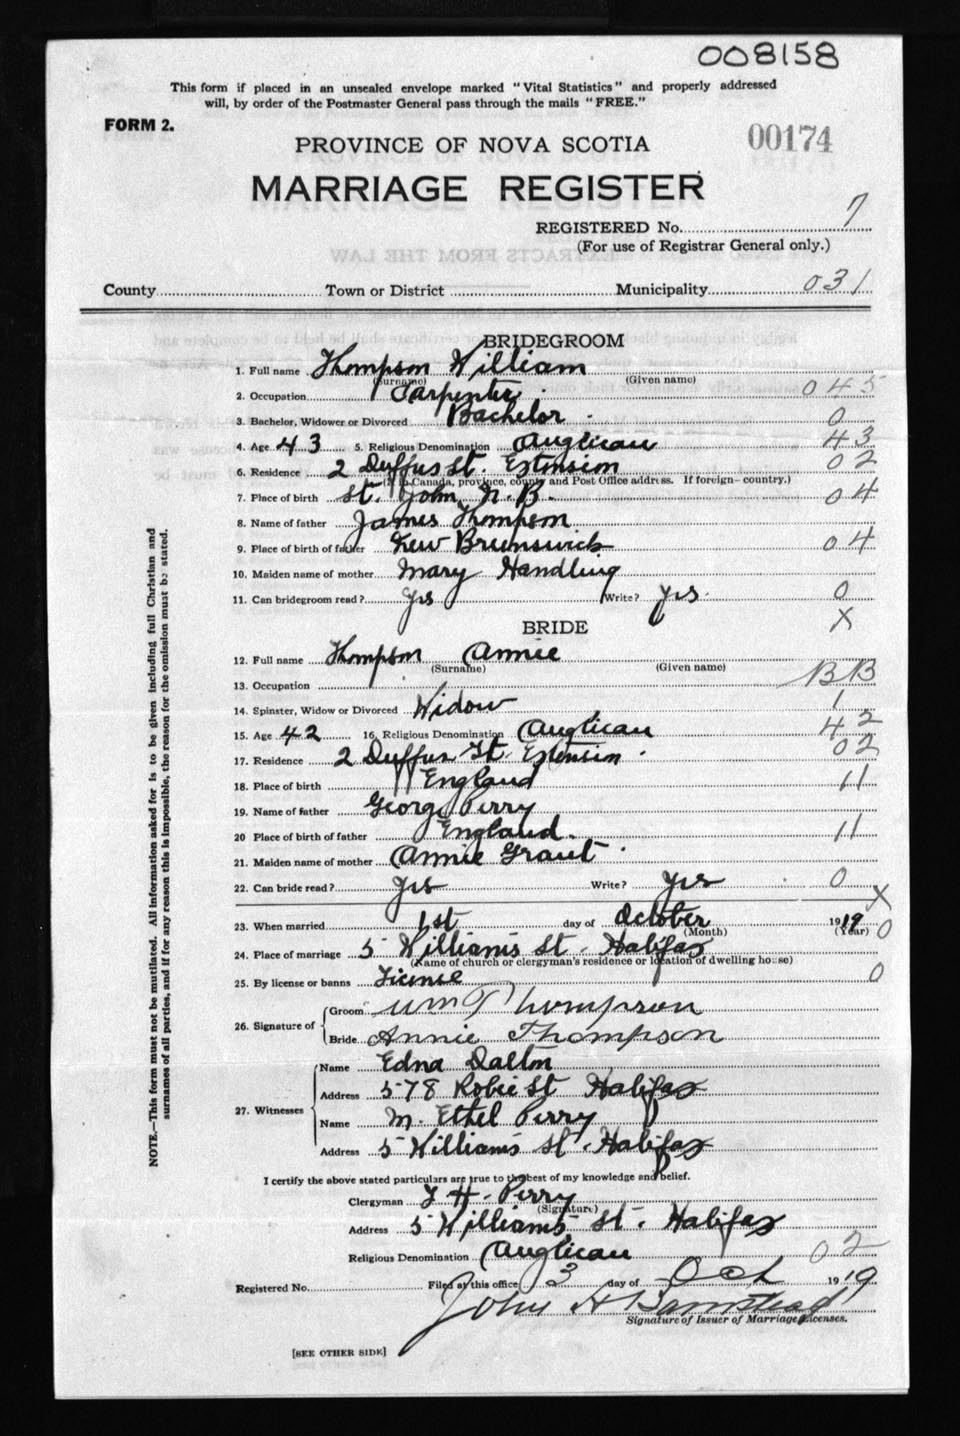 008158
This form if placed in an unsealed envelope marked "Vital Statistics" and properly addressed
will, by order of the Postmaster General pass through the mails "FREE."
FORM 2.
00174
PROVINCE OF NOVA SCOTIA
MARRIAGE REGISTER
REGISTERED No. 7
(For use of Registrar General only.)
County Town or District Municipality 031
BRIDEGROOM
1. Full name Thompson William
(Surname) (Given name)
2. Occupation Carpenter 045
3. Bachelor, Widower or Divorced Bachelor 0
4. Age 43 5. Religious Denomination Anglican 43
6. Residence 2 Duffus St. Extension 02
(If in Canada, province, county and Post Office address. If foreign—country.)
7. Place of birth St. John, N.B. 04
8. Name of father James Thompson
9. Place of birth of father New Brunswick 04
10. Maiden name of mother Mary Handling
11. Can bridegroom read? Yes Write? Yes 0
X
BRIDE
12. Full name Thompson Annie
(Surname) (Given name)
13. Occupation BB
14. Spinster, Widow or Divorced Widow 1
15. Age 42 16. Religious Denomination Anglican 42
17. Residence 2 Duffus St. Extension 02
18. Place of birth England 11
19. Name of father George Perry
20 Place of birth of father England. 11
21. Maiden name of mother Annie Grant
22. Can bride read? Yes Write? Yes 0
X
23. When married 1st day of October 1919 0
(Month) (Year)
24. Place of marriage 5 Williams St. Halifax
(Name of church or clergyman's residence or location of dwelling house)
25. By license or banns License 0
26. Signature of Groom Wm Thompson
Bride Annie Thompson
27. Witnesses Name Edna Dalton
Address 578 Robie St Halifax
Name M. Ethel Perry
Address 5 Williams St. Halifax
I certify the above stated particulars are true to the best of my knowledge and belief.
Clergyman T H. Perry
(Signature)
Address 5 Williams St. Halifax
Religious Denomination Anglican 02
Registered No. Filed at this office 3 day of Oct 1919
John H Barnstead
Signature of Issuer of Marriage Licenses.
[SEE OTHER SIDE]
NOTE.—This form must not be mutilated. All information asked for is to be given including full Christian and
surnames of all parties, and if for any reason this is impossible, the reason for the omission must be stated.